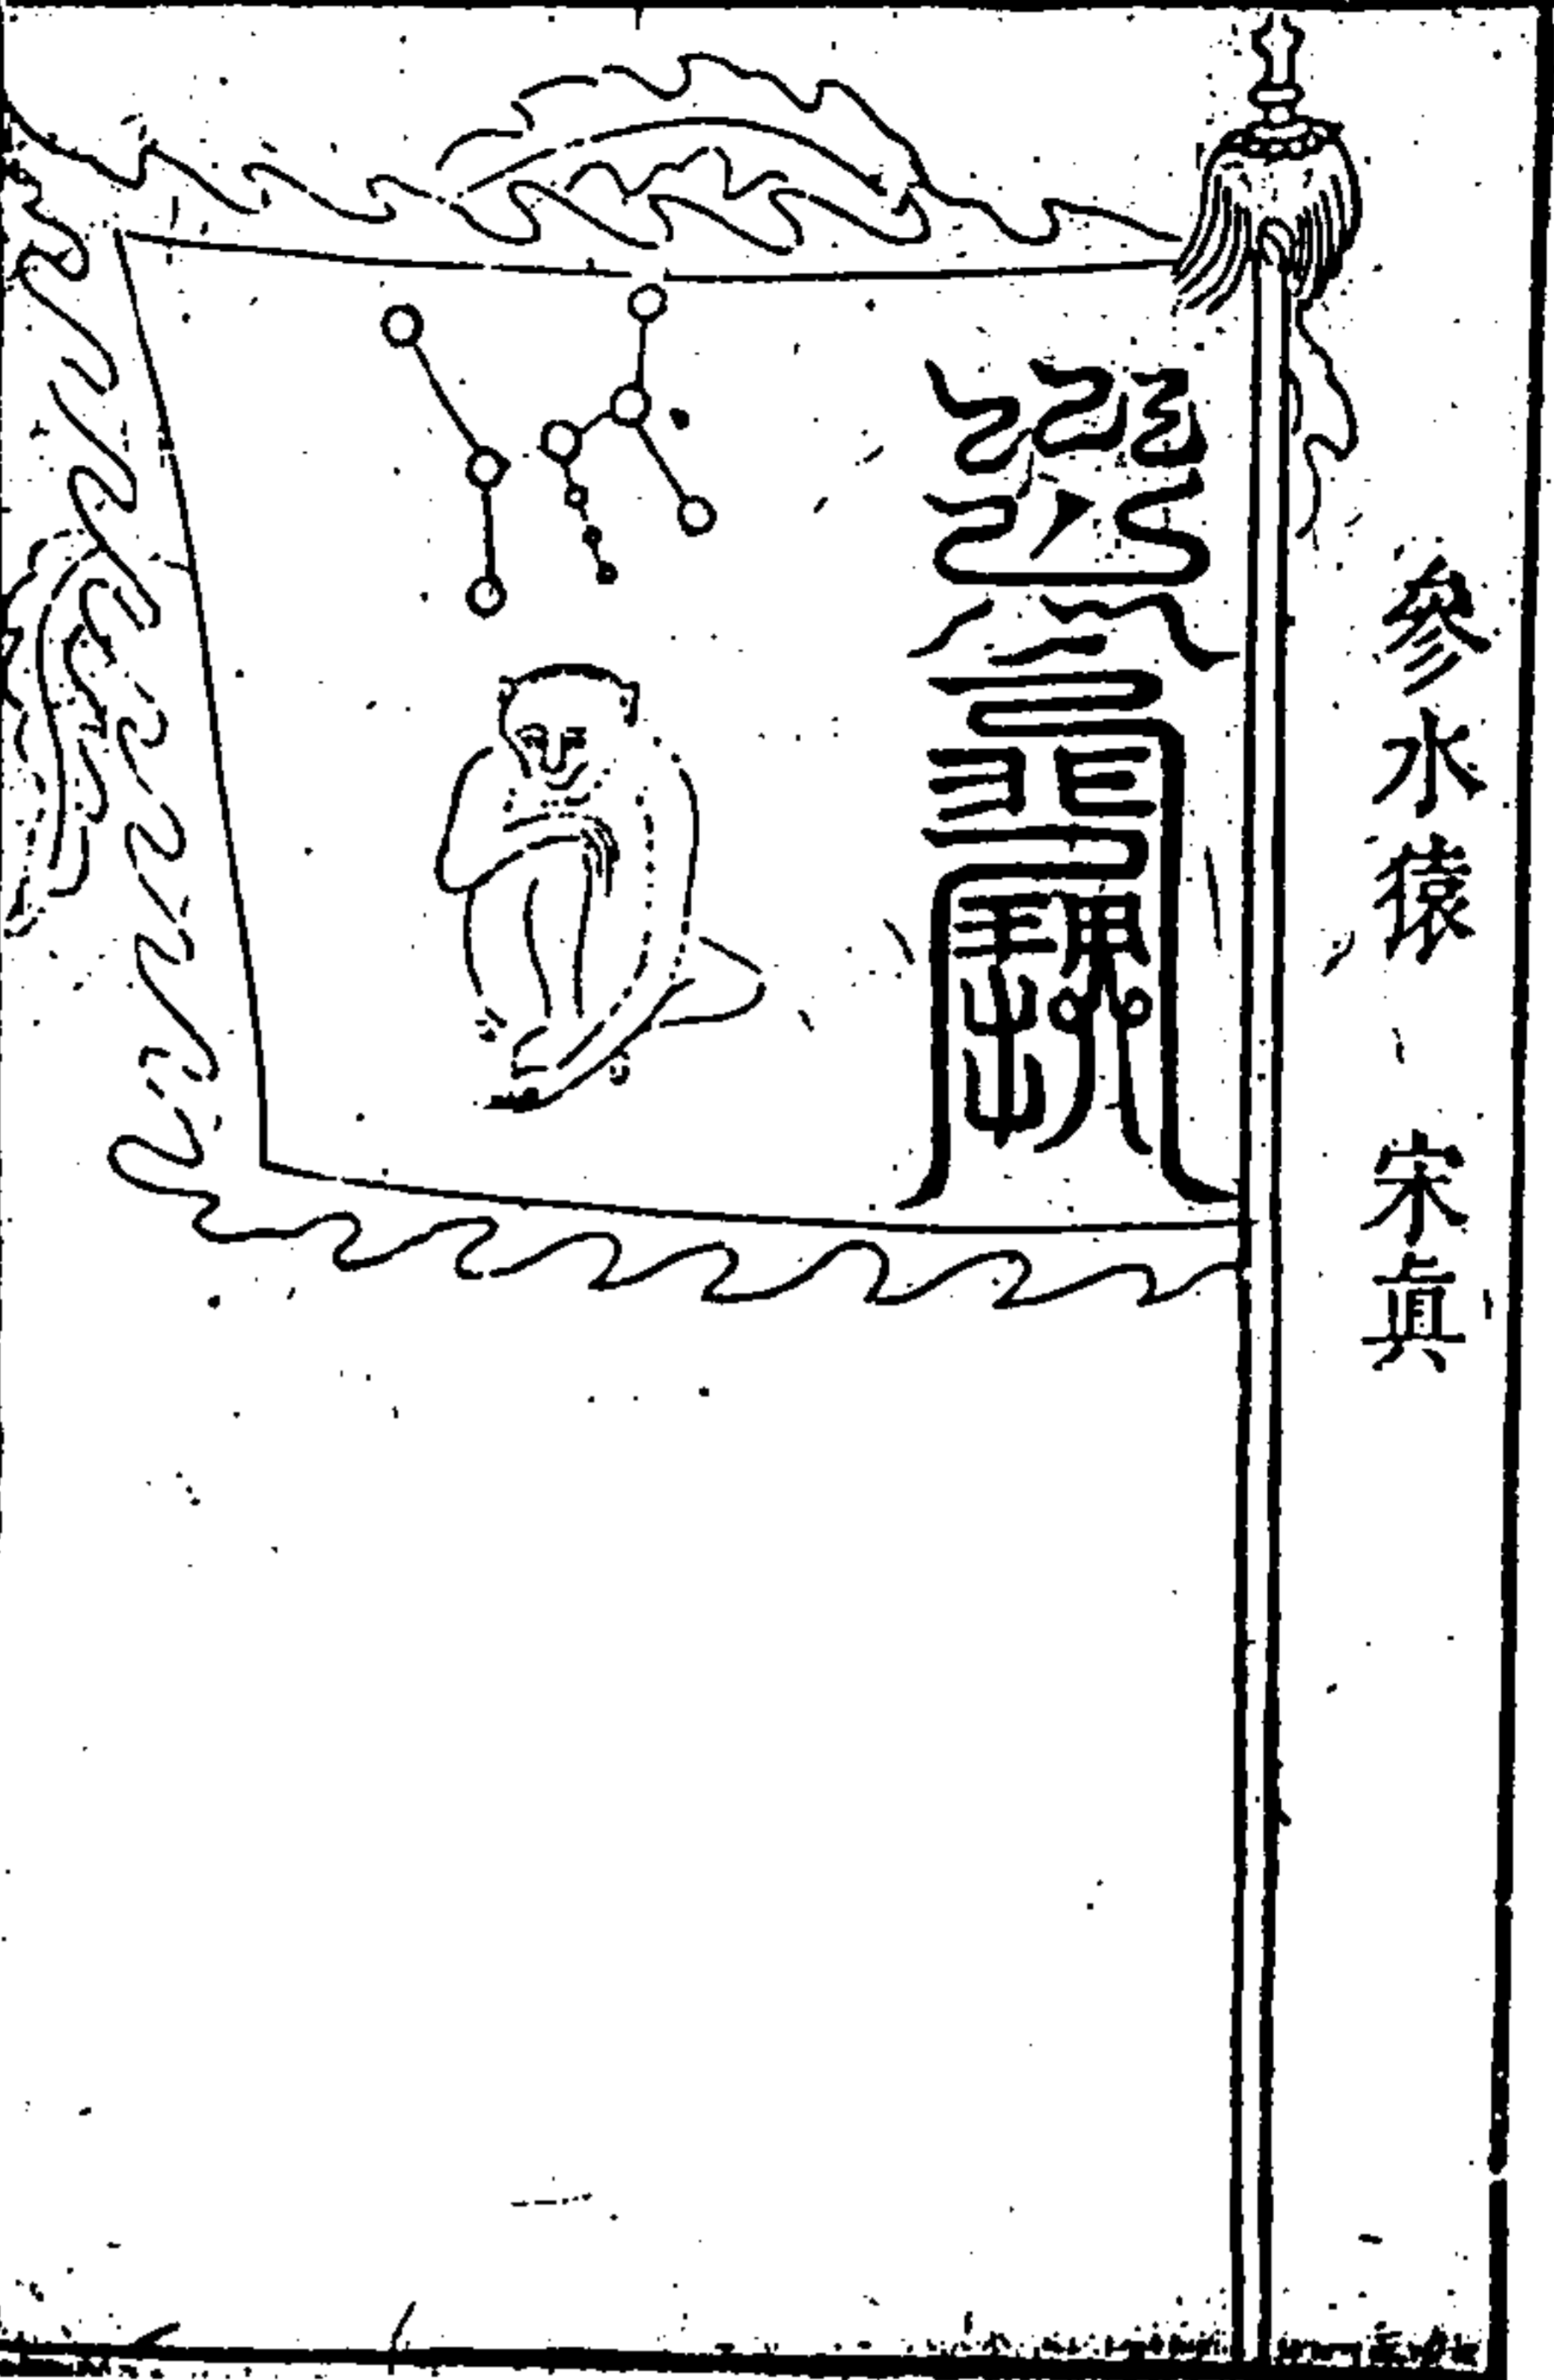 參水猿 宋眞